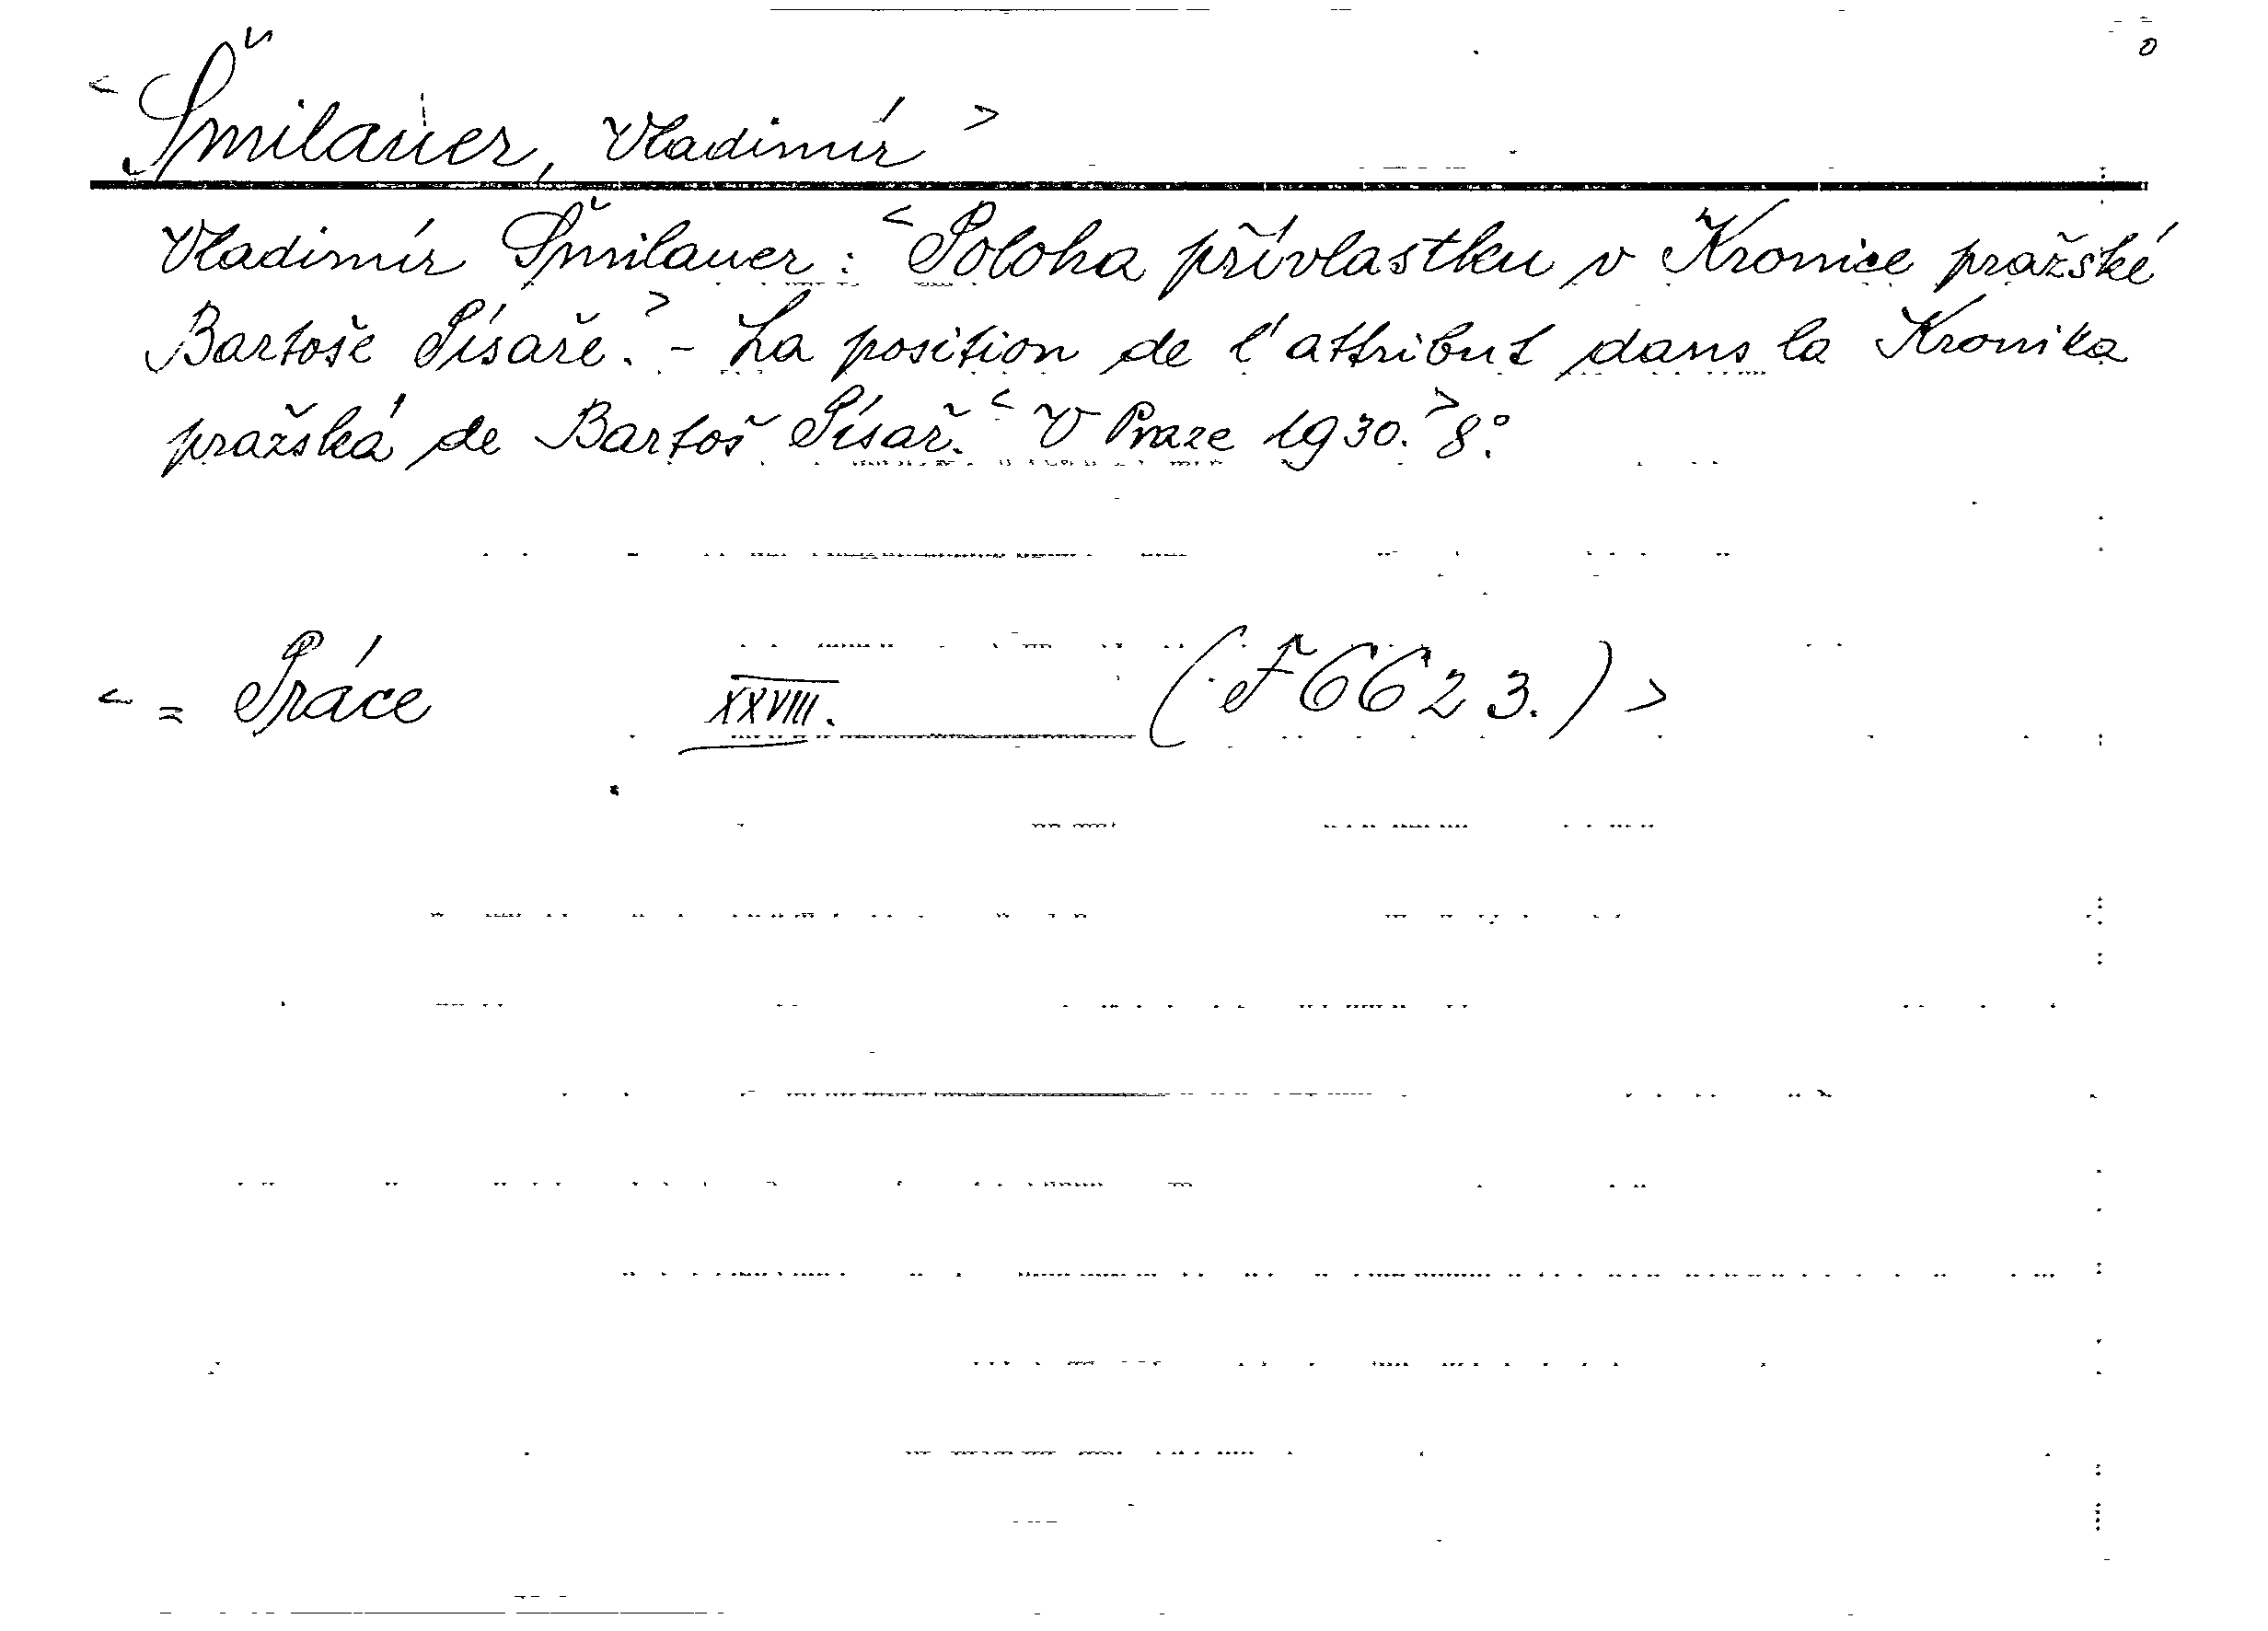 < Šmilauer, Vladimír >
Vladimír Šmilauer: < Poloha přívlastku v Kronice pražské
Bartoše Písaře. > - La position de l'attribut dans la Kronika
pražská de Bartoš Písař. < V Praze 1930. > 8°.
< = Práce XXVIII. (F 6623.) >